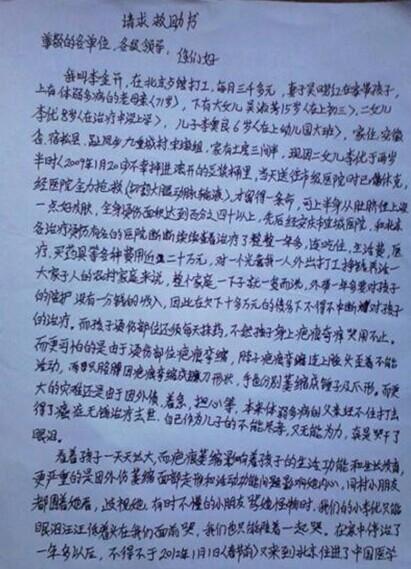 请求救助书
尊敬的各单位、各级领导:
您们好
我叫李全开,在北京打工,每月三千多元,妻子吴 红在家带孩子,
上有体弱多病的老母亲(71岁),下有大女儿吴淑芳15岁(在上初三),二女儿
李优8岁(在治疗中没上学),儿子李 良6岁(在上幼儿园大班),家住:安徽
省、宿松县、趾凤乡九重城村宋嶺组,家有土房三间半,现因二女儿李优于两岁
半时(2009年1月20日)不幸掉进滚开的豆浆桶里,当天送往市级医院时已休克,
经医院全力抢救(切割大腿动脉输液)才留得一条命,可上半身从肚脐往上没
一点好皮肤,全身烫伤面积达到百分之四十以上,先后经安庆市立城医院,和北京
各治疗烫伤有名的医院断断续续坚着治疗了整整一年多,连吃住,生活费,医
疗、买药具等各种费用近二十万元,对一个光靠一人外出打工挣钱养活一
大家子人的农村家庭来说,整个家庭一下子就一贫而洗,外带一年多要对孩子
的陪护没有一分钱的收入,因此在欠下十多万元的债务下不得不中断对孩子
的治疗。而孩子烫伤部位还须每天抹药,不然孩子身上疤痕奇痒哭闹不止。
而更可怕的是由于烫伤部位疤痕挛缩,脖子疤痕挛缩连上腋头至着不能
活动,两只胳膊因疤痕挛缩成镰刀形状,手也分别萎缩成锤子及爪形。而更
大的灾难还是由于因外债、着急、担心等,本来体弱多病的父亲经不住打击
得了癌症无钱治疗去世,自己作为儿子的不能尽孝,又无能为力,真是哭干了
眼泪。
看着孩子一天天长大,而疤痕萎缩影响着孩子的生活功能和生长发育,
更严重的是因外伤萎缩面部走形和活动功能问题影响她内心,同村小朋友
都围着她看,歧视她,有时不懂的小朋友骂她怪物时,我们的小李优只能
眼泪汪汪低着头在我们面前哭,我们也只能陪着一起哭。在家中停治了
一年多以后,不得不于2012年1月1日(春节前)又来到北京住进了中国医学